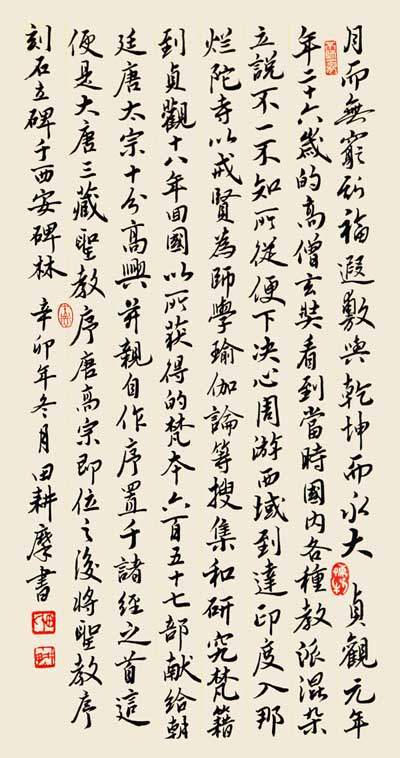 月而無窮斯福遐敷與乾坤而永大 貞觀元年
年二十六歲的高僧玄奘看到當時國内各種教派混杂
立說不一不知所從便下决心周游西域到達印度入那
烂陀寺以戒賢為師學瑜伽論等搜集和研究梵籍
到貞觀十八年回國以所获得的梵本六百五十七部献給朝
廷唐太宗十分高興并親自作序置于諸經之首這
便是大唐三藏聖教序唐高宗即位之後將聖教序
刻石立碑于西安碑林 辛卯年冬月田耕摩書